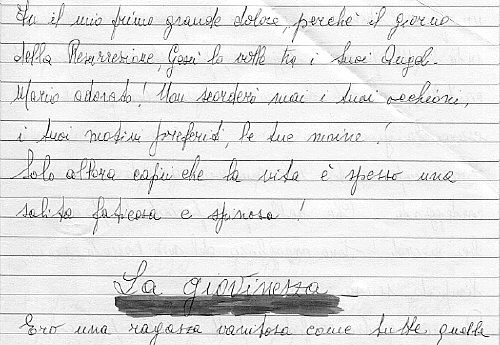 Fu il mio primo grande dolore, perchè il giorno
della Resurrezione, Gesù lo volle tra i suoi Angeli.
Mario adorato! Non scorderò mai i tuoi occhioni,
i tuoi motivi preferiti, le tue moine!
Solo allora capii che la vita è spesso una
salita faticosa e spinosa!
La giovinezza
Ero una ragazza vanitosa come tutte quelle